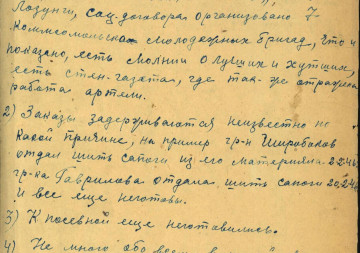 Лозунги, соц-договора организовано 7
Комсомольско молодежных бригад, что и
показано, есть молнии о лучших и худших
есть стен-газета, где так-же отражена
работа артели.
2) Заказы задерживаются неизвестно по
какой причине, на пример гр-н Широбоков
отдал шить сапоги из его материяла 22/4 46
гр-ка Гаврилова отдала шить сапоги 20/2 46
и все еще неготовы.
3) К посевной еще неготовились.
4) Не много обо всем